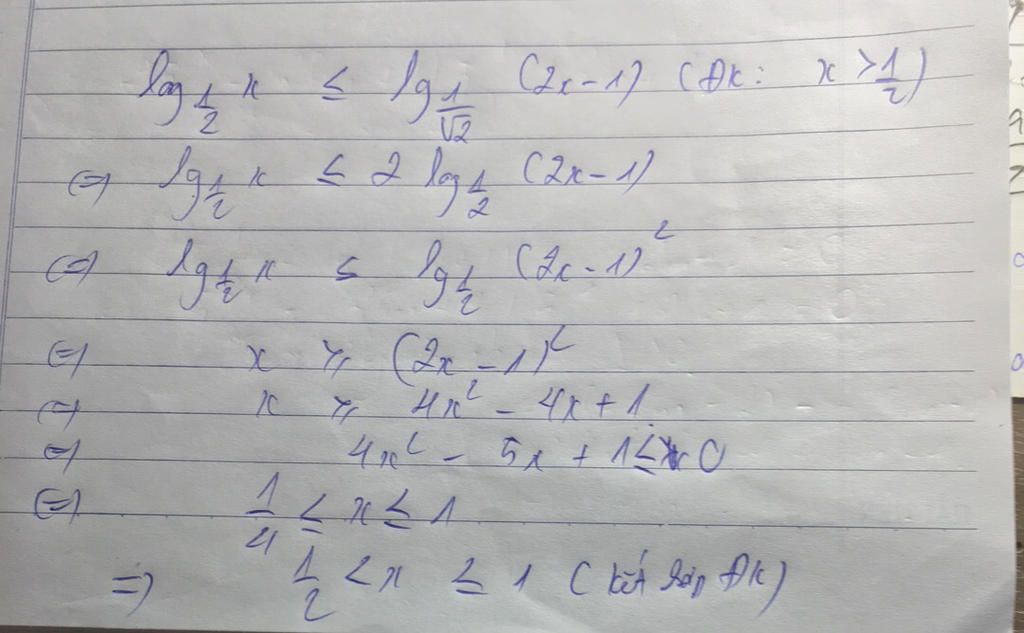 log_{1/2} x ≤ log_{1/√2} (2x-1) (ĐK: x > 1/2)
⇔ log_{1/2} x ≤ 2 log_{1/2} (2x-1)
⇔ log_{1/2} x ≤ log_{1/2} (2x-1)²
⇔ x ≥ (2x-1)²
⇔ x ≥ 4x² - 4x + 1
⇔ 4x² - 5x + 1 ≤ 0
⇔ 1/4 ≤ x ≤ 1
⇒ 1/2 < x ≤ 1 (kết hợp ĐK)